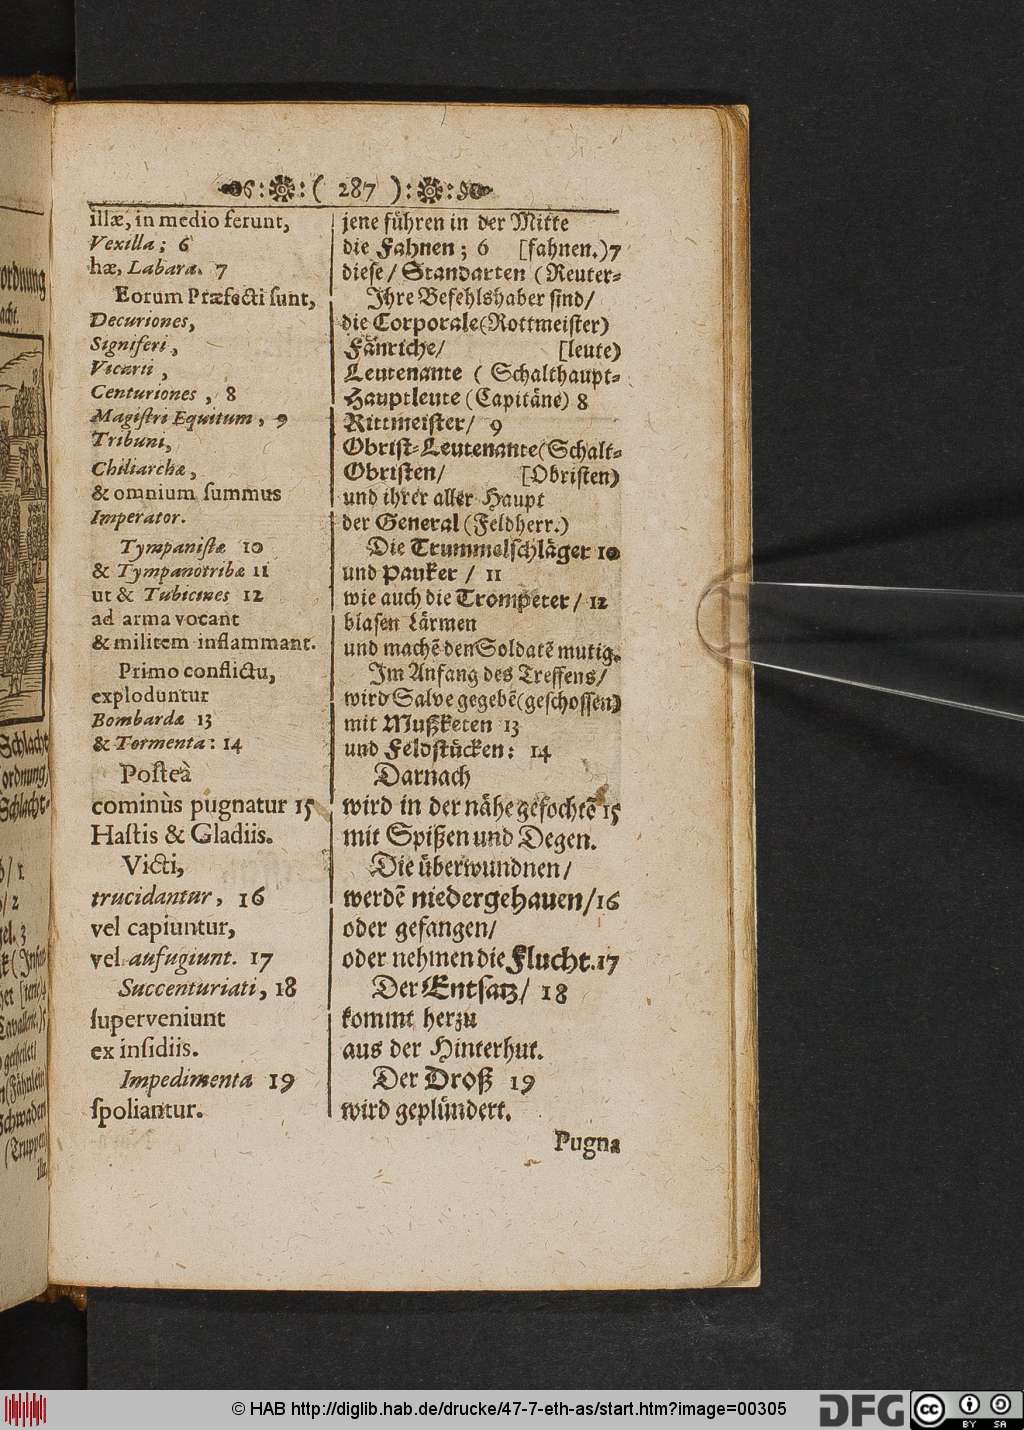 ( 287 )
illæ, in medio ferunt,
Vexilla; 6
hæ, Labara. 7
Eorum Præfecti ſunt,
Decuriones,
Signiferi,
Vicarii,
Centuriones, 8
Magiſtri Equitum, 9
Tribuni,
Chiliarchæ,
& omnium ſummus
Imperator.
Tympaniſtæ 10
& Tympanotribæ 11
ut & Tubicines 12
ad arma vocant
& militem inflammant.
Primo conflictu,
exploduntur
Bombardæ 13
& Tormenta: 14
Poſteà
cominùs pugnatur 15
Haſtis & Gladiis.
Victi,
trucidantur, 16
vel capiuntur,
vel aufugiunt. 17
Succenturiati, 18
ſuperveniunt
ex inſidiis.
Impedimenta 19
ſpoliantur.
jene führen in der Mitte
die Fahnen; 6 [fahnen.)7
dieſe/ Standarten (Reuter-
Ihre Befehlshaber ſind/
die Corporale(Rottmeiſter)
Fänriche/ [leute)
Leutenante ( Schalthaupt-
Hauptleute (Capitäne) 8
Rittmeiſter/ 9
Obriſt-Leutenante(Schalt-
Obriſten/ [Obriſten)
und ihrer aller Haupt
der General (Feldherr.)
Die Trummelſchläger 10
und Pauker / 11
wie auch die Trompeter/ 12
blaſen Lärmen
und machẽ den Soldatẽ mutig.
Im Anfang des Treffens/
wird Salve gegebẽ(geſchoſſen)
mit Mußketen 13
und Feldſtücken: 14
Darnach
wird in der nähe gefochtẽ 15
mit Spißen und Degen.
Die überwundnen/
werdẽ niedergehauen/16
oder gefangen/
oder nehmen die Flucht.17
Der Entſatz/ 18
kommt herzu
aus der Hinterhut.
Der Droß 19
wird geplündert.
Pugna
© HAB http://diglib.hab.de/drucke/47-7-eth-as/start.htm?image=00305
DFG
cc
BY SA